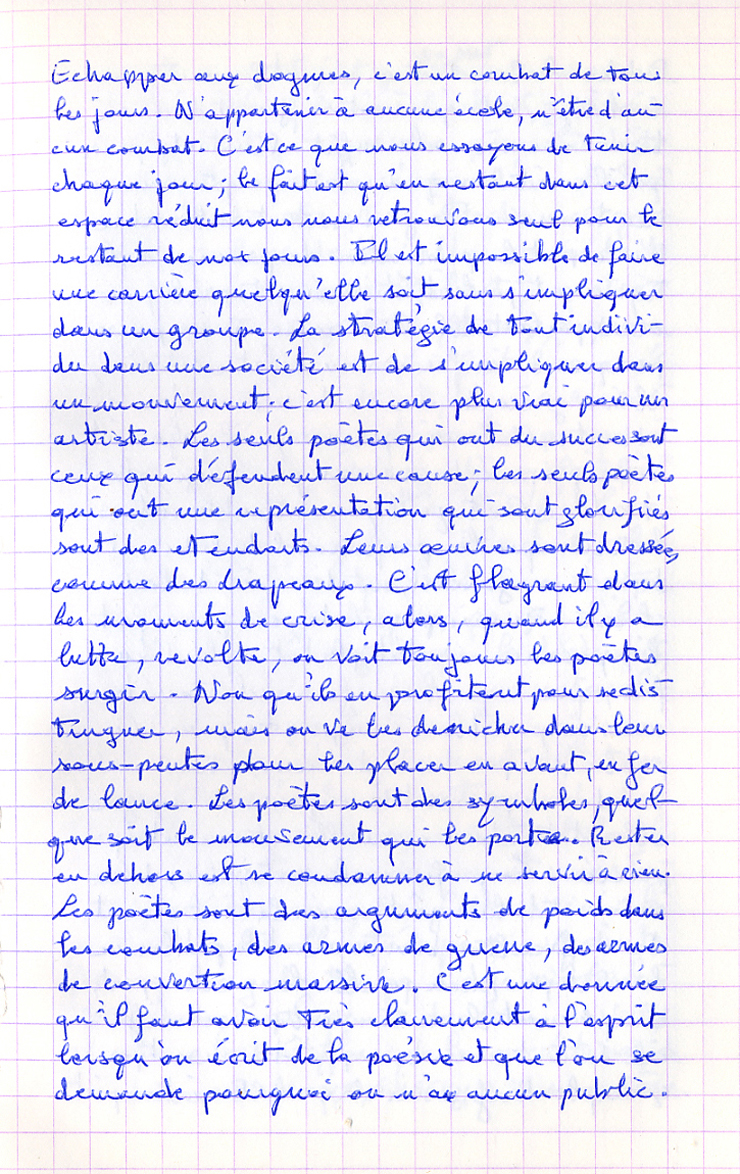 Echapper aux dogmes, c'est un combat de tous
les jours. N'appartenir à aucune école, n'être d'au-
cun combat. C'est ce que nous essayons de tenir
chaque jour ; le fait est qu'en restant dans cet
espace réduit nous nous retrouvons seul pour le
restant de nos jours. Il est impossible de faire
une carrière quelqu'elle soit sans s'impliquer
dans un groupe. La stratégie de tout indivi-
du dans une société est de s'impliquer dans
un mouvement ; c'est encore plus vrai pour un
artiste. Les seuls poètes qui ont du succes sont
ceux qui défendent une cause ; les seuls poètes
qui ont une représentation qui sont glorifiés
sont des etendarts. Leurs œuvres sont dressées
comme des drapeaux. C'est flagrant dans
les moments de crise, alors, quand il y a
lutte, revolte, on voit toujours les poètes
surgir. Non qu'ils en profitent pour se dis
tinguer, mais on va les denicher dans leur
sous-pentes pour les placer en avant, en fer
de lance. Les poètes sont des symboles, quel-
que soit le mouvement qui les porte. Rester
en dehors est se condamner à ne servir à rien.
Les poètes sont des arguments de poids dans
les combats, des armes de guerre, des armes
de convertion massive. C'est une donnée
qu'il faut avoir très clairement à l'esprit
lorsqu'on écrit de la poésie et que l'on se
demande pourquoi on n'a aucun public.